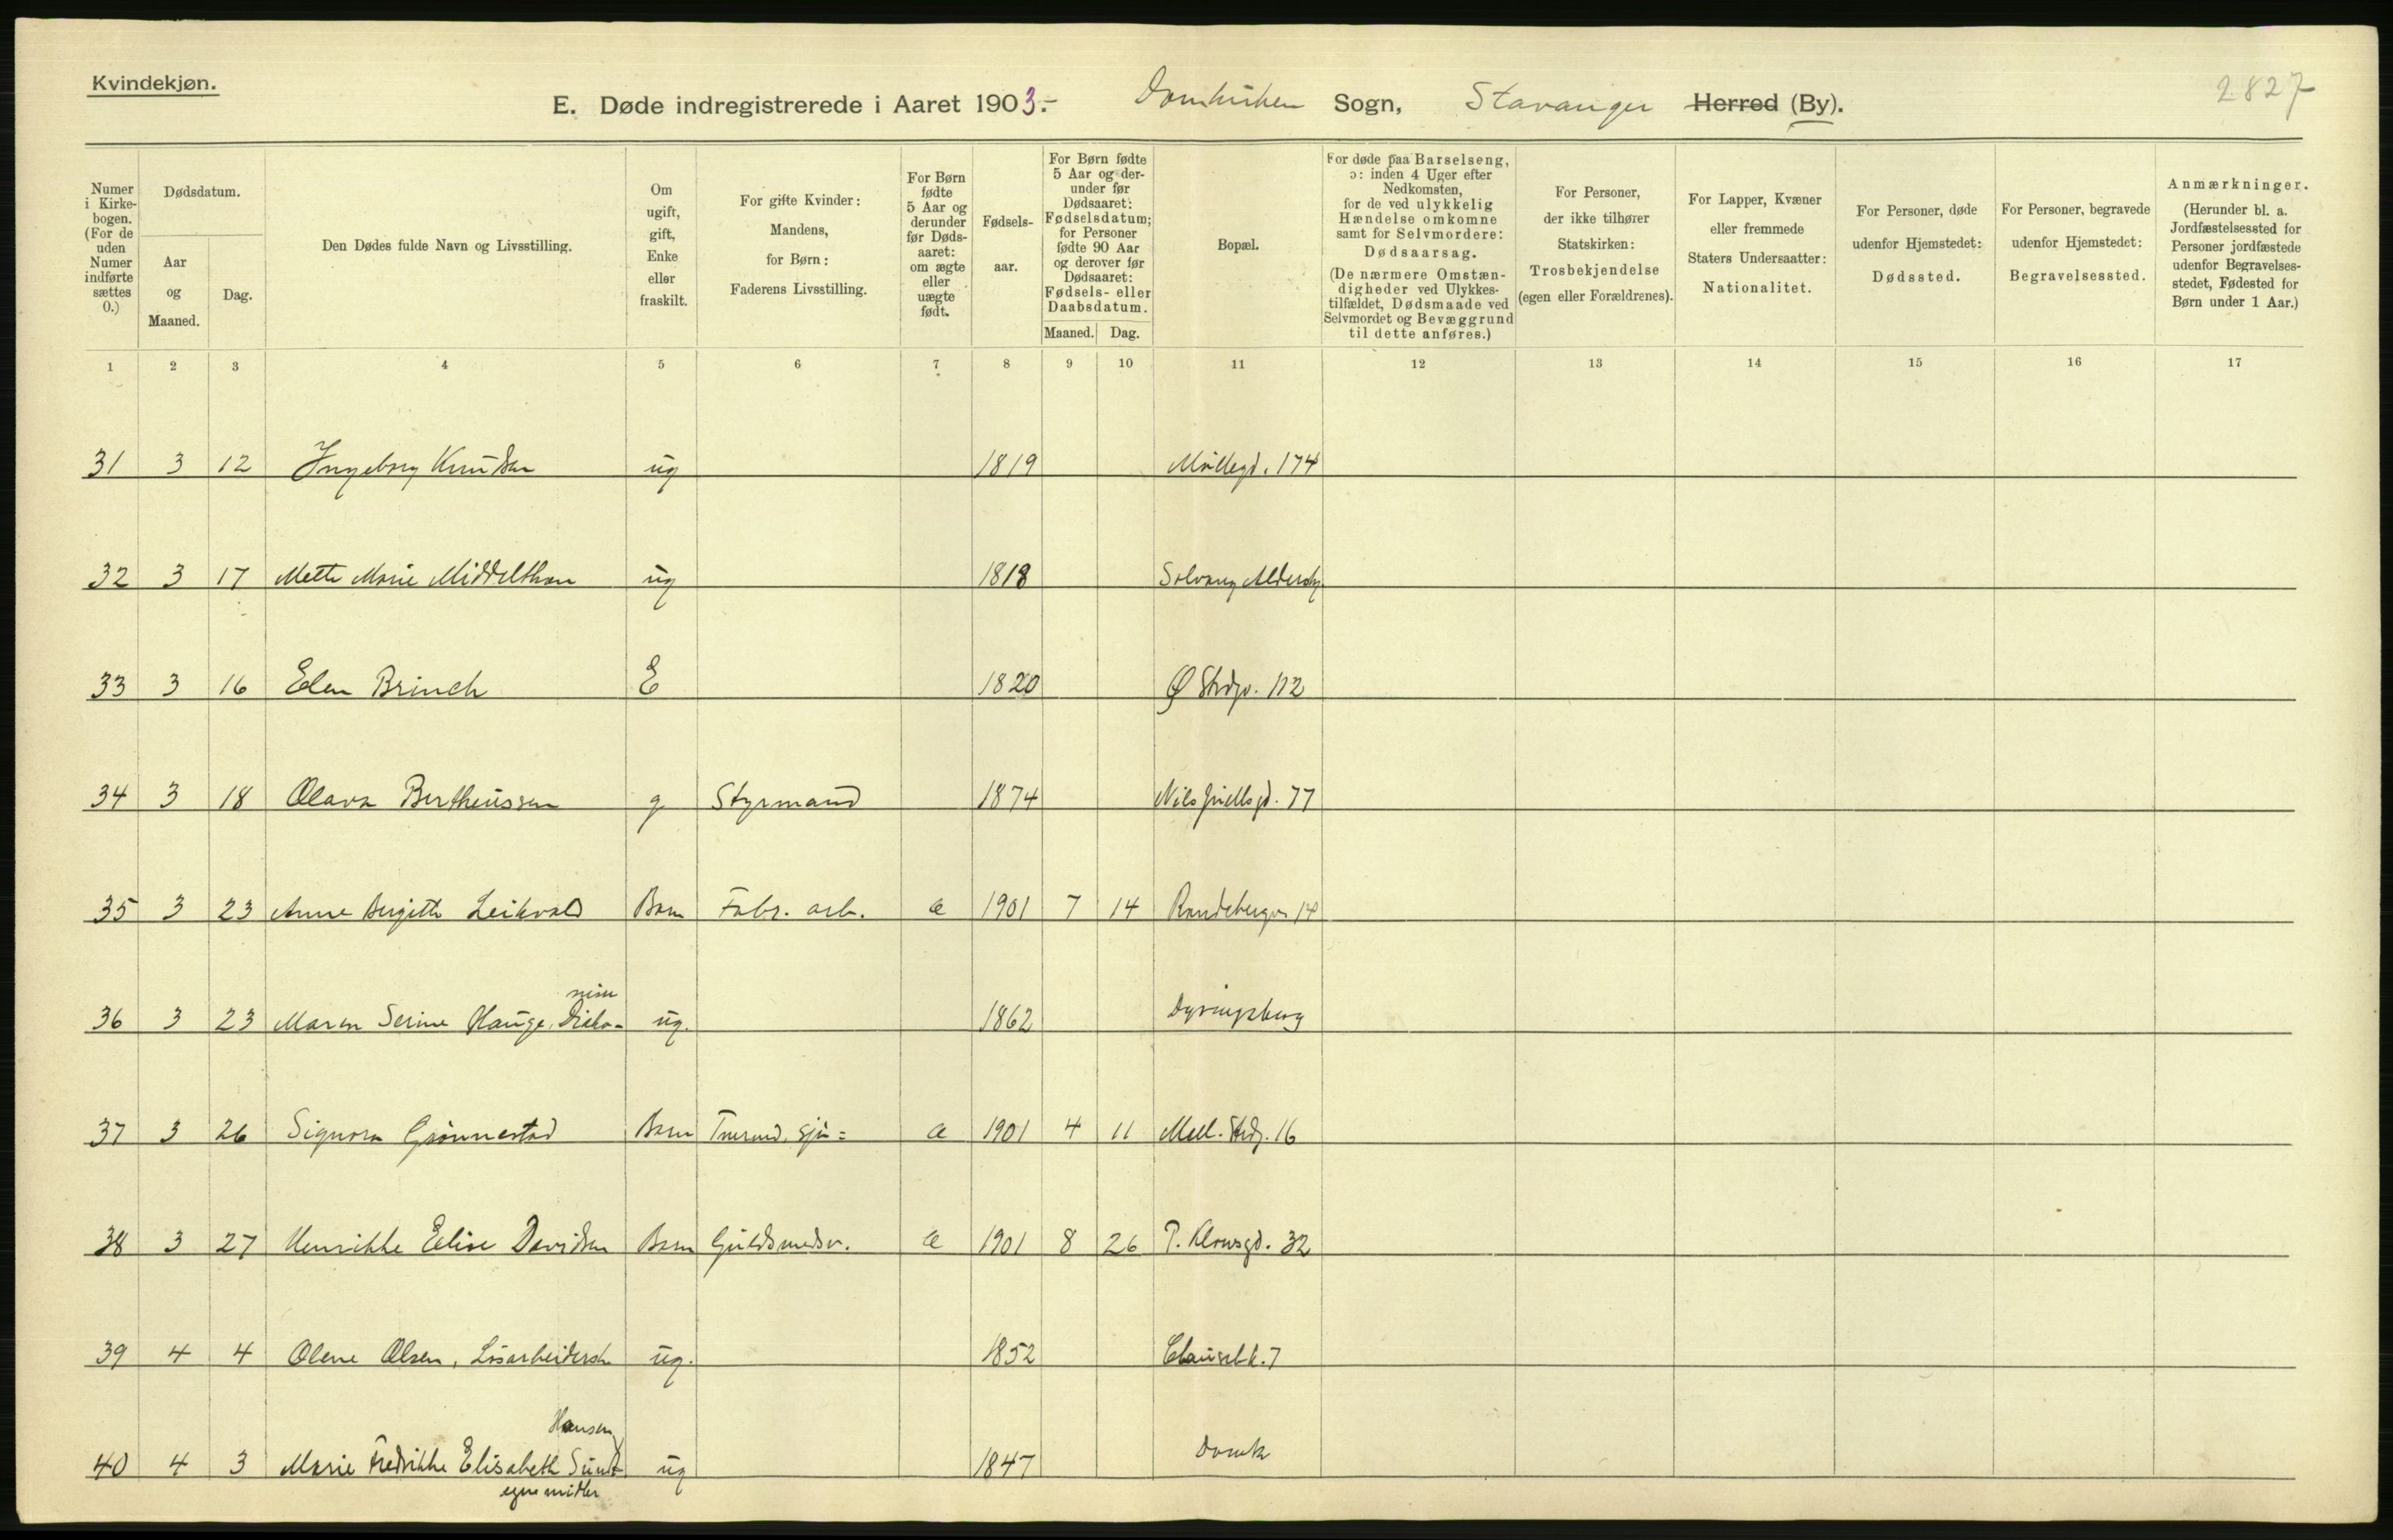 Kvindekjøn.
E. Døde indregistrerede i Aaret 1903.- Domkirken Sogn, Stavanger Herred (By).
2827
Numer i Kirkebogen. (For de uden Numer indførte sættes 0.)
Dødsdatum.
Aar og Maaned.
Dag.
Den Dødes fulde Navn og Livsstilling.
Om ugift, gift, Enke eller fraskilt.
For gifte Kvinder: Mandens, for Børn: Faderens Livsstilling.
For Børn fødte 5 Aar og derunder før Dødsaaret: om ægte eller uægte født.
Fødselsaar.
For Børn fødte 5 Aar og derunder før Dødsaaret: Fødselsdatum; for Personer fødte 90 Aar og derover før Dødsaaret: Fødsels- eller Daabsdatum.
Maaned. Dag.
Bopæl.
For døde paa Barselseng, ɔ: inden 4 Uger efter Nedkomsten, for de ved ulykkelig Hændelse omkomne samt for Selvmordere: Dødsaarsag. (De nærmere Omstændigheder ved Ulykkestilfældet, Dødsmaade ved Selvmordet og Bevæggrund til dette anføres.)
For Personer, der ikke tilhører Statskirken: Trosbekjendelse (egen eller Forældrenes).
For Lapper, Kvæner eller fremmede Staters Undersaatter: Nationalitet.
For Personer, døde udenfor Hjemstedet: Dødssted.
For Personer, begravede udenfor Hjemstedet: Begravelsessted.
Anmærkninger. (Herunder bl. a. Jordfæstelsessted for Personer jordfæstede udenfor Begravelsesstedet, Fødested for Børn under 1 Aar.)
1 2 3 4 5 6 7 8 9 10 11 12 13 14 15 16 17
31 3 12 Ingeborg Knudsen ug 1819 Møllegd. 174
32 3 17 Mette Marie Middelthon ug 1818 Solvang
33 3 16 Elen Brinch E 1820 Ø Strdgv. 112
34 3 18 Olava Bertheussen g Styrmand 1874 Nils Juellsgd. 77
35 3 23 Anne Bergitte Leikvold Barn Fabr. arb. æ 1901 7 14 Randebergv. 14
36 3 23 Maren Serine Hauge, Diako-
nisse
ug. 1862 Dyringsberg
37 3 26 Signora Grønnestad Barn æ 1901 4 11 Mell. Strdg. 16
38 3 27 Henrikke Elise Davidsen Barn Guldsmedsv. æ 1901 8 26 P. Klowsgd. 32
39 4 4 Olene Olsen, Løsarbeidersk ug. 1852 Clauseb. 7
Hansen
40 4 3 Marie Fredrikke Elisabeth Sundt ug 1847
egne midler